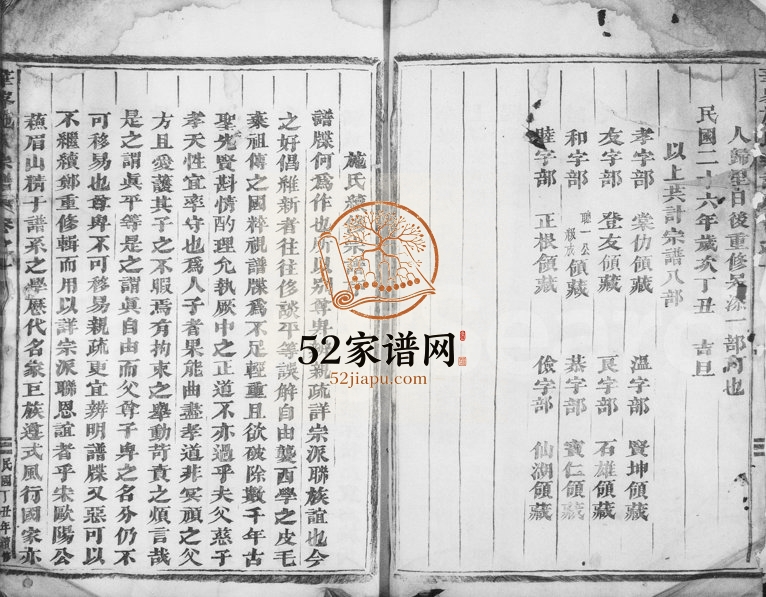 人歸
日後重修
一部
也
民國二十六年歲次丁丑 吉旦
以上共計宗譜八部
孝字部 棠仂領藏 溫字部 賢坤領藏
友字部 登友領藏 良字部 石雄領藏
和字部 聽一公 領藏 恭字部 賓仁領藏
睦字部 正根領藏 儉字部 仙湖領藏
施氏
修宗譜
譜牒何爲作也所以別尊卑
親疏詳宗派聯族誼也今
之好倡維新者往往侈談平等誤解自由襲西學之皮毛
棄祖傳之國粹視譜牒爲不足輕重且欲破除數千年古
聖先賢斟情酌理允執厥中之正道不亦過乎夫父慈子
孝天性宜率守也爲人子者果能曲盡孝道非冥頑之父
方且愛護其子之不暇焉有拘束之舉動苛責之煩言哉
是之謂眞平等是之謂眞自由而父尊子卑之名分仍不
可移易也尊卑不可移易親疏更宜辨明譜牒又惡可以
不繼續鄭重修輯而用以詳宗派聯恩誼者乎宋歐陽公
蘇眉山精于譜系之學歷代名家巨族遵式風行國家亦
民國丁丑年續修
52家谱网
52jiapu.com